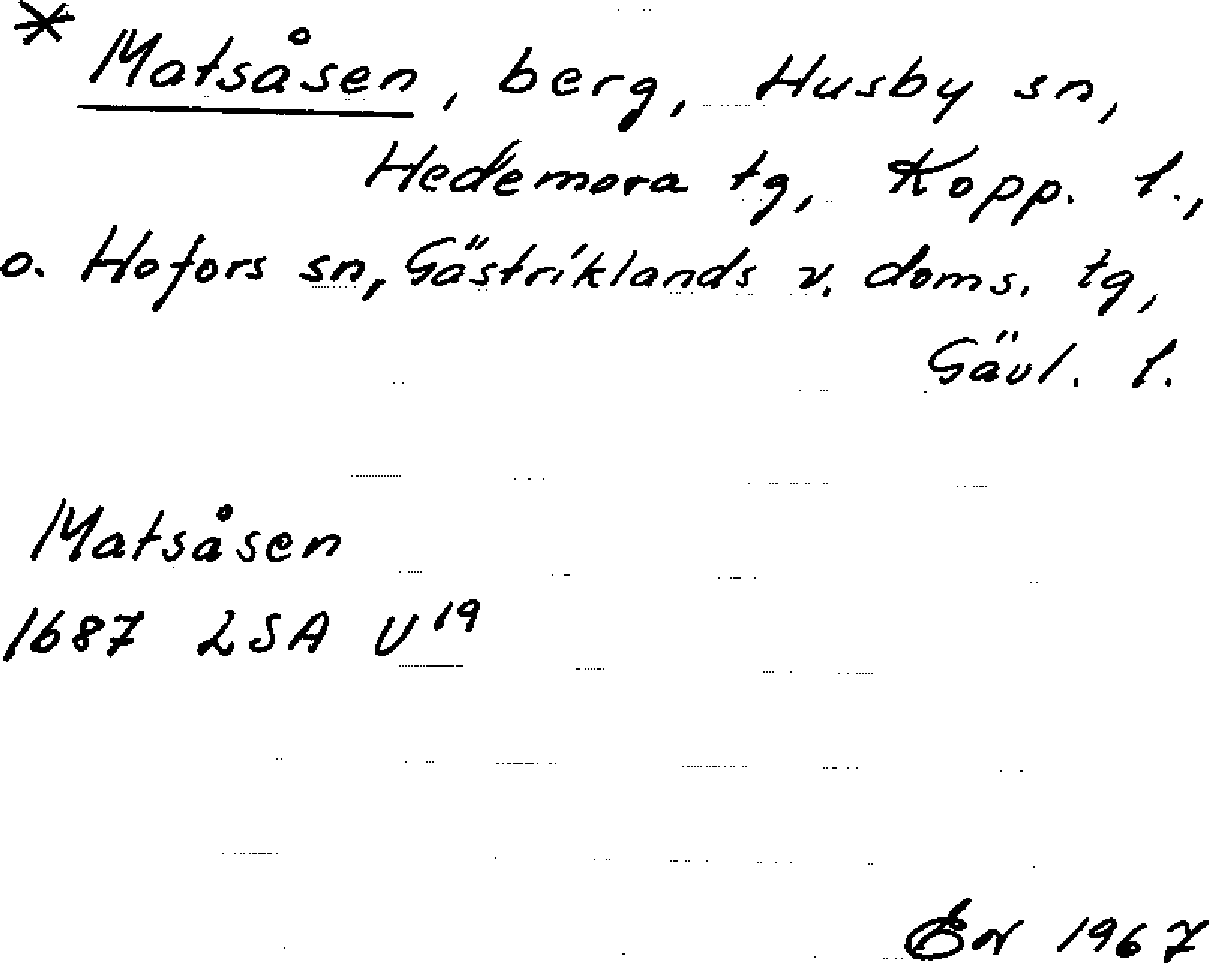 * Matsåsen, berg, Husby sn,
Hedemora tg, Kopp. l.,
o. Hofors sn, Gästriklands v. doms. tg,
Gävl. l.
Matsåsen
1687 LSA U¹⁹
1967